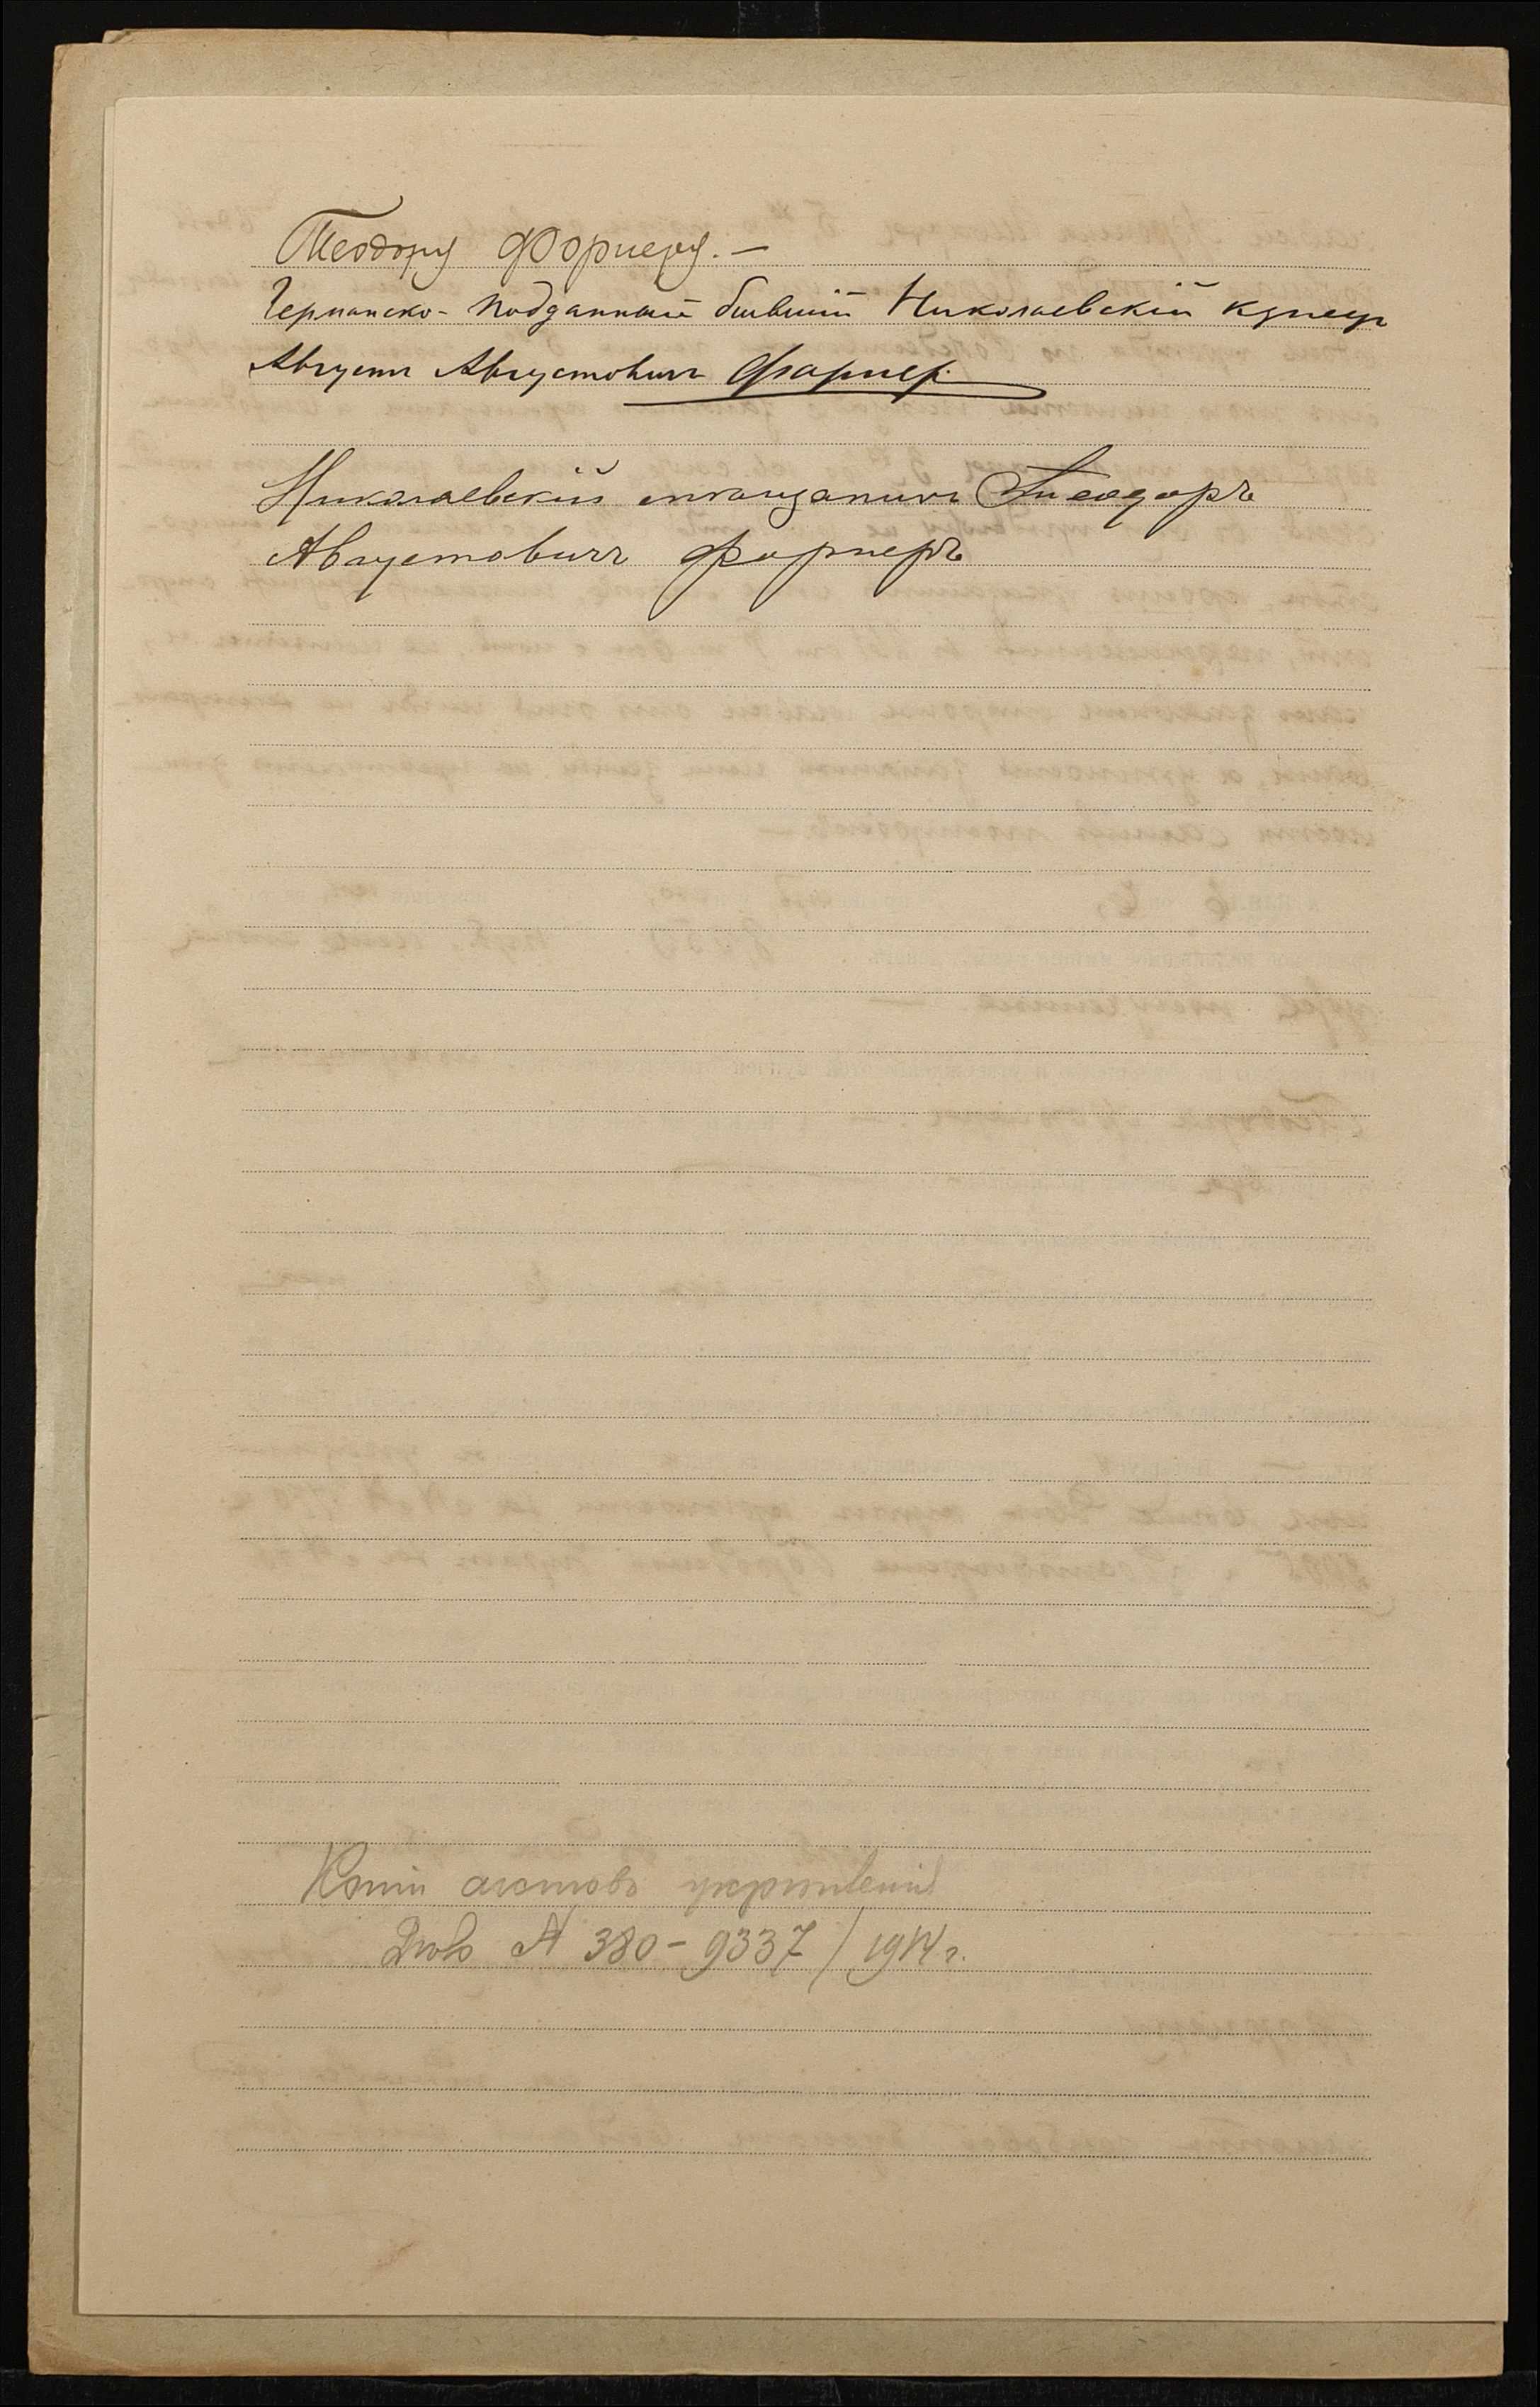 Теодору Форнеру. —
Германско-подданный бывший Николаевскій купецъ
Августъ Августовичъ Форнер.
Николаевскій мѣщанинъ Теодоръ
Августовичъ Форнеръ
Копіи актовъ укрѣпленія
Дѣло № 380 – 9337 / 1914 г.